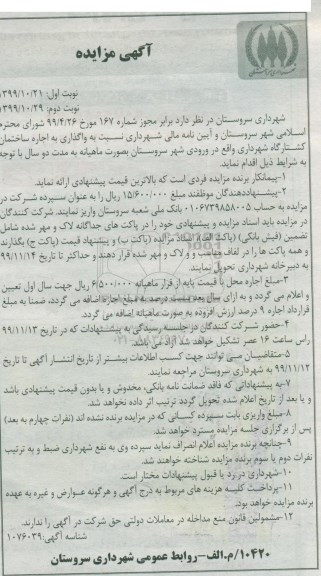 آگهی مزایده
نوبت اول: ۱۳۹۹/۱۰/۲۱
نوبت دوم: ۱۳۹۹/۱۰/۲۹
شهرداری سروستان در نظر دارد برابر مجوز شماره ۱۶۷ مورخ ۹۹/۴/۲۶ شورای محترم
اسلامی شهر سروستان و آیین نامه مالی شهرداری نسبت به واگذاری به اجاره ساختمان
کشتارگاه شهرداری واقع در ورودی شهر سروستان بصورت ماهیانه به مدت دو سال با توجه
به شرایط ذیل اقدام نماید.
۱-پیمانکار برنده مزایده فردی است که بالاترین قیمت پیشنهادی ارائه نماید.
۲-پیشنهاددهندگان موظفند مبلغ ۱۵/۶۰۰/۰۰۰ ریال را به عنوان سپرده شرکت در
مزایده به حساب ۰۱۰۶۷۳۹۸۵۸۰۰۵ بانک ملی شعبه سروستان واریز نمایند. شرکت کنندگان
در مزایده باید اسناد مزایده و پیشنهادی خود را در پاکت های جداگانه لاک و مهر شده شامل
تضمین (فیش بانکی) (پاکت الف) اسناد مزایده (پاکت ب) و پیشنهاد قیمت (پاکت ج) بگذارند
و همه پاکت ها را در لفاف مناسب و لاک و مهر شده قرار دهند و حداکثر تا تاریخ ۹۹/۱۱/۱۴
به دبیرخانه شهرداری تحویل نمایند.
۳-مبلغ اجاره محل با قیمت پایه از قرار ماهیانه ۶/۵۰۰/۰۰۰ ریال جهت سال اول تعیین
و اعلام می گردد و به ازای سال بعد بیست درصد به مبلغ اجاره اضافه می گردد، ضمنا به مبلغ
قرارداد اجاره ۹ درصد ارزش افزوده به صورت ماهیانه اضافه می گردد.
۴-حضور شرکت کنندگان در جلسه رسیدگی به پیشنهادات که در تاریخ ۹۹/۱۱/۱۳
راس ساعت ۱۶ عصر تشکیل خواهد شد آزاد می باشد.
۵-متقاضیان می توانند جهت کسب اطلاعات بیشتر از تاریخ انتشار آگهی تا تاریخ
۹۹/۱۱/۱۲ به شهرداری سروستان مراجعه نمایند.
۷-به پیشنهاداتی که فاقد ضمانت نامه بانکی، مخدوش و یا بدون قیمت پیشنهادی باشد
و یا بعد از تاریخ اعلام شده تحویل گردد ترتیب اثر داده نخواهد شد.
۸-مبلغ واریزی بابت سپرده کسانی که در مزایده برنده نشده اند (نفرات چهارم به بعد)
پس از برگزاری جلسه مزایده مسترد خواهد شد.
۹-چنانچه برنده مزایده اعلام انصراف نماید سپرده وی به نفع شهرداری ضبط و به ترتیب
نفرات دوم یا سوم برنده مزایده شناخته خواهند شد.
۱۰-شهرداری در رد یا قبول پیشنهادات مختار است.
۱۱-پرداخت کلیه هزینه های مربوط به درج آگهی و هرگونه عوارض و غیره به عهده
برنده مزایده خواهد بود.
۱۲-مشمولین قانون منع مداخله در معاملات دولتی حق شرکت در آگهی را ندارند.
شناسه آگهی: ۱۰۷۶۰۳۹
۱۰۴۲۰/م.الف-روابط عمومی شهرداری سروستان